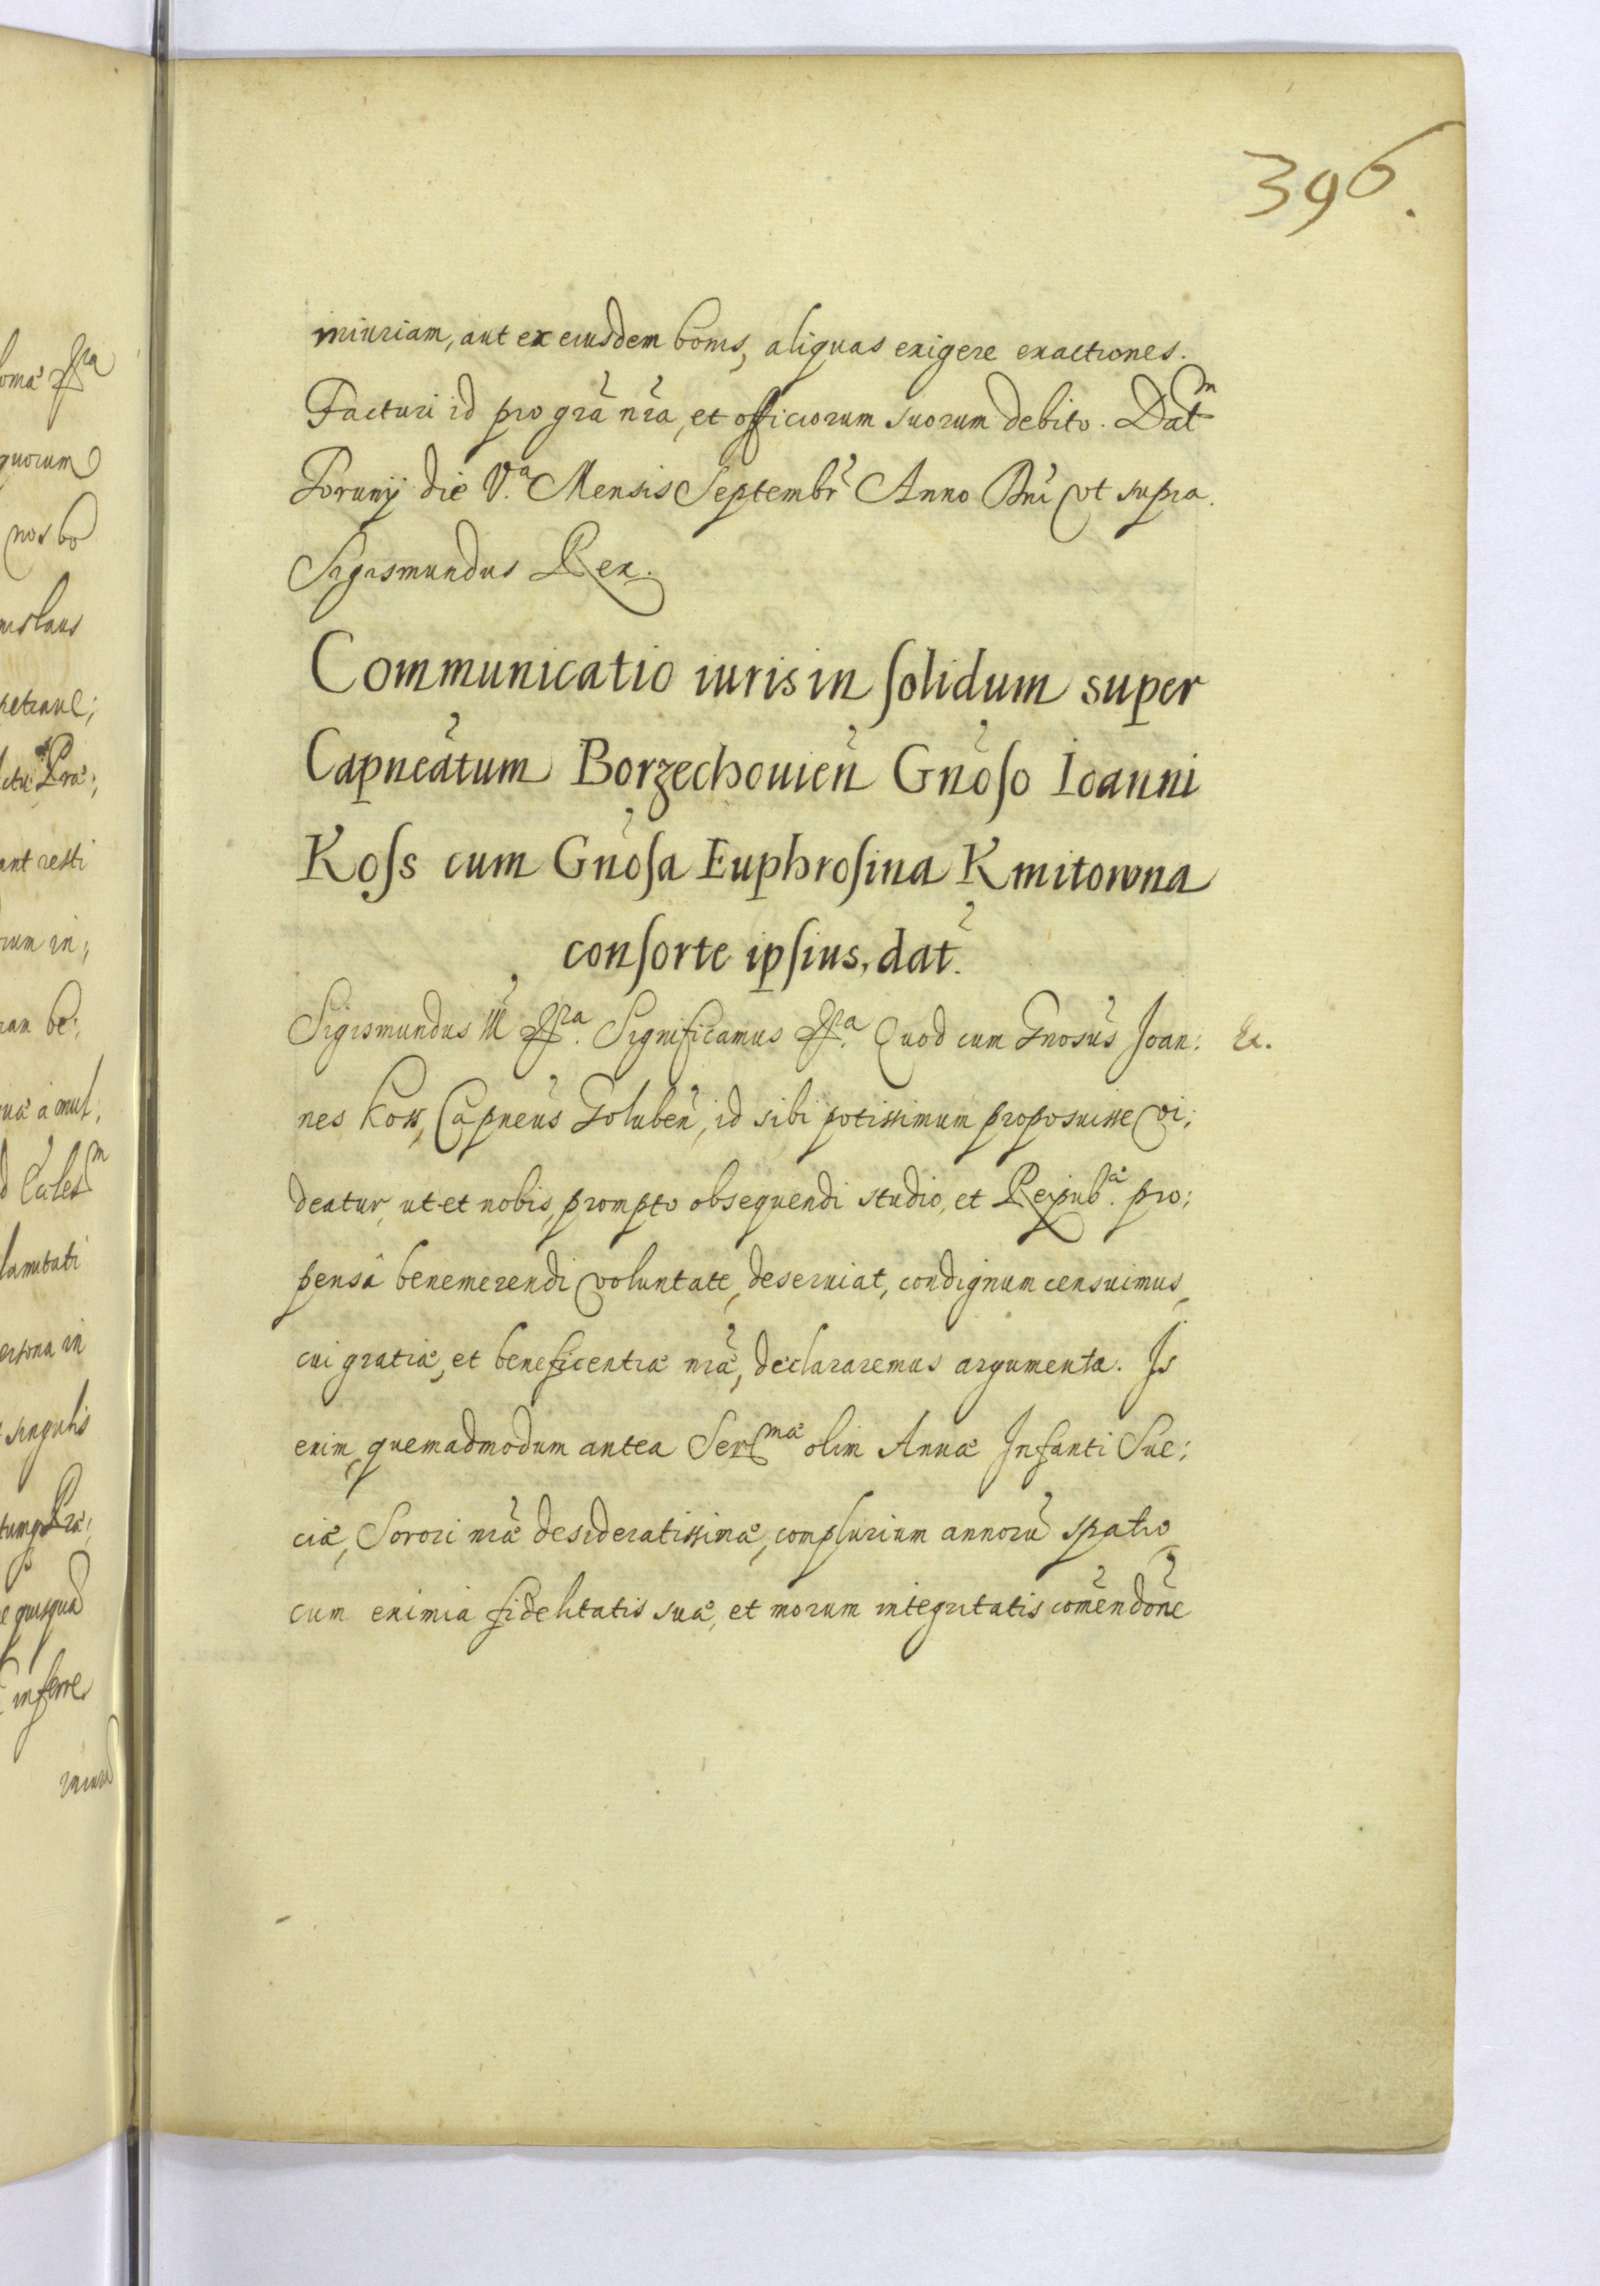 396.
iniuriam, aut ex eiusdem bonis, aliquas exigere exactiones.
Facturi id pro grã nrã, et officiorum suorum debito. Datm
Torunij die V.a Mensis Septembr̃ Anno Dni ut supra.
Sigismundus Rex.
Communicatio iuris in ſolidum super
Capneãtum Borzechouień Gnõſo Ioanni
Koſs cum Gnõſa Euphroſina Kmitowna
conſorte ipſius, dat̃.
Sigismundus III Significamus Quod cum Gnosus̃ Joan: Ex.
nes Koss, Capneus̃ Golubeñ, id sibi potissimum proposuisse vi;
deatur, ut et nobis, prompto obsequendi studio, et Reipub.æ pro;
pensâ benemerendi voluntate, deseruiat, condignum censuimus,
cui gratiæ, et beneficentiæ nræ̃, declararemus argumenta. Is
enim, quemadmodum antea Sermæ olim Annæ Infanti Sue;
ciæ, Sorori nræ̃ desideratissimæ, complurium annorũ spatio
cum eximia fidelitatis suæ, et morum integritatis com̃endõne
quorum
nos bo
nislaus
ant resti
rum in;
be;
a mul;
ersona in
singulis
quisquã
inferre